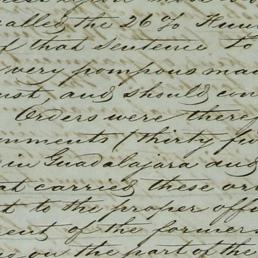 ally, the 26%
of that sentence to
very pompous ma
ust, and should con
Orders were there
nments (thirty fi
in Guadalajara and
at carried these or
t to the proper offi
ent of the former
on the part of the